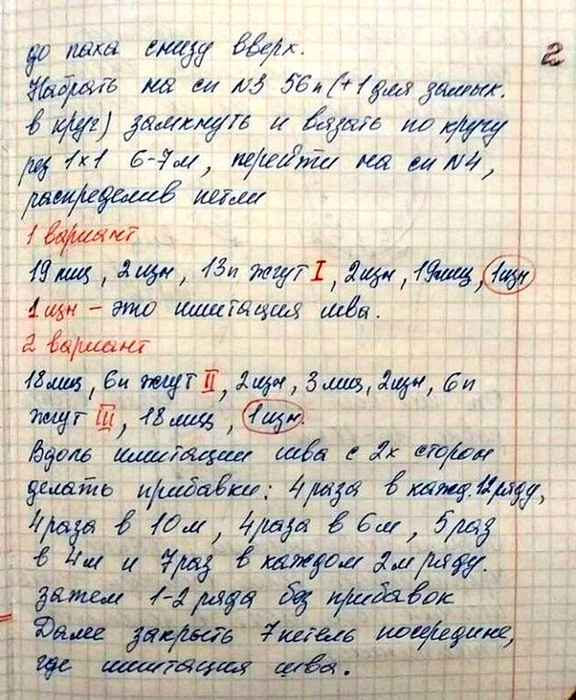 2
до паха снизу вверх.
Набрать на сп №3 56п (+1 для замык.
в круг) замкнуть и вязать по кругу
рез 1х1 6-7м, перейти на сп №4,
распределив петли
1 вариант
19 лиц, 2 изн, 13п жгут I, 2изн, 19лиц, 1изн
1 изн – это имитация шва.
2 вариант
18 лиц, 6п жгут II, 2изн, 3 лиц, 2изн, 6п
жгут III, 18 лиц, 1 изн.
Вдоль имитации шва с 2х сторон
делать прибавки: 4 раза в кажд. 12 ряду,
4 раза в 10м, 4 раза в 6м, 5 раз
в 4м и 7 раз в каждом 2м ряду.
затем 1-2 ряда без прибавок
Далее закрыть 7 петель посередине,
где имитация шва.